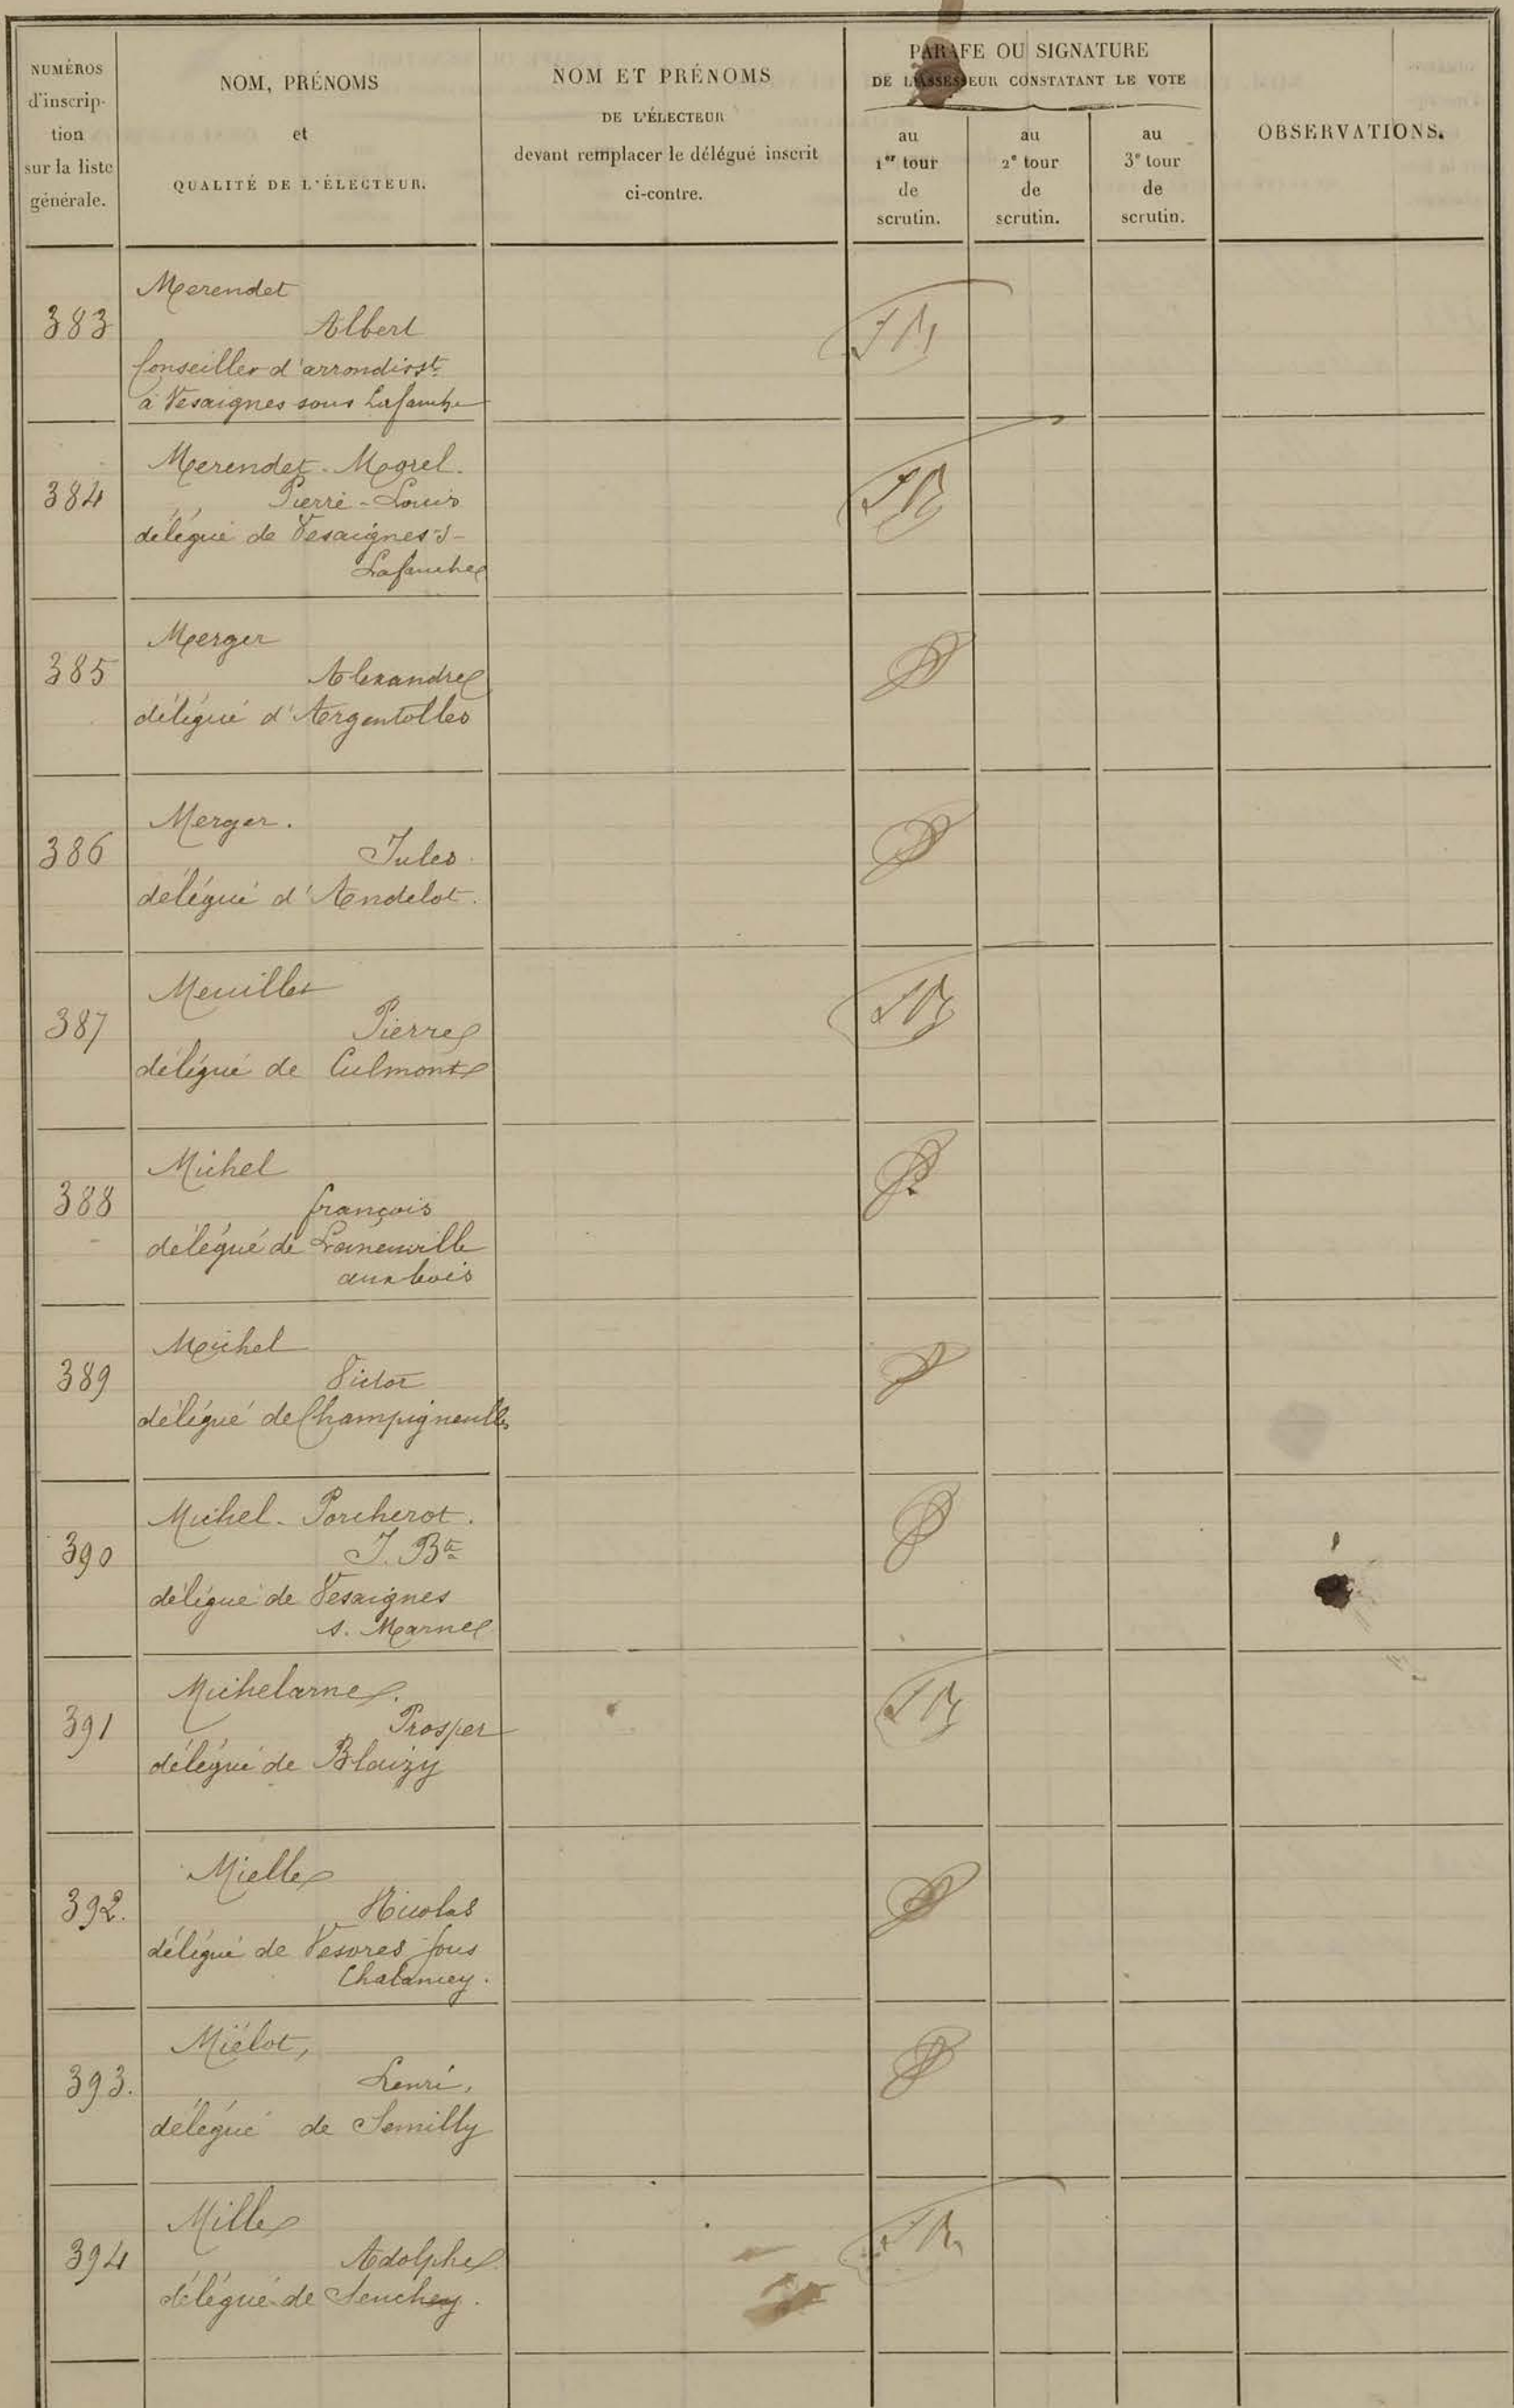 NUMÉROS
d'inscrip-
tion
sur la liste
générale.
NOM, PRÉNOMS
et
QUALITÉ DE L'ÉLECTEUR.
NOM ET PRÉNOMS
DE L'ÉLECTEUR
devant remplacer le délégué inscrit
ci-contre.
PARAFE OU SIGNATURE
DE L'ASSESSEUR CONSTATANT LE VOTE
au
1er tour
de
scrutin.
au
2e tour
de
scrutin.
au
3e tour
de
scrutin.
OBSERVATIONS.
383
Merendet
Albert
Conseiller d'arrondisst
à Vesaignes sous Lafauche
384
Merendet-Morel.
Pierre-Louis
délégué de Vesaignes-s-
Lafauche
385
Merger
Alexandre
délégué d'Argentolles
386
Merger.
Jules.
délégué d'Andelot.
387
Meuillet
Pierre
délégué de Culmont
388
Michel
françois
délégué de Laneuville
aux bois
389
Michel
Victor
délégué de Champigneulles
390
Michel-Porcherot.
J. Bte
délégué de Vesaignes
s. Marne
391
Michelarne.
Prosper
délégué de Blaizy
392.
Mielle
Nicolas
délégué de Vesvres sous
Chalancey.
393.
Miélot,
Henri,
délégué de Semilly
394
Mille
Adolphe
délégué de